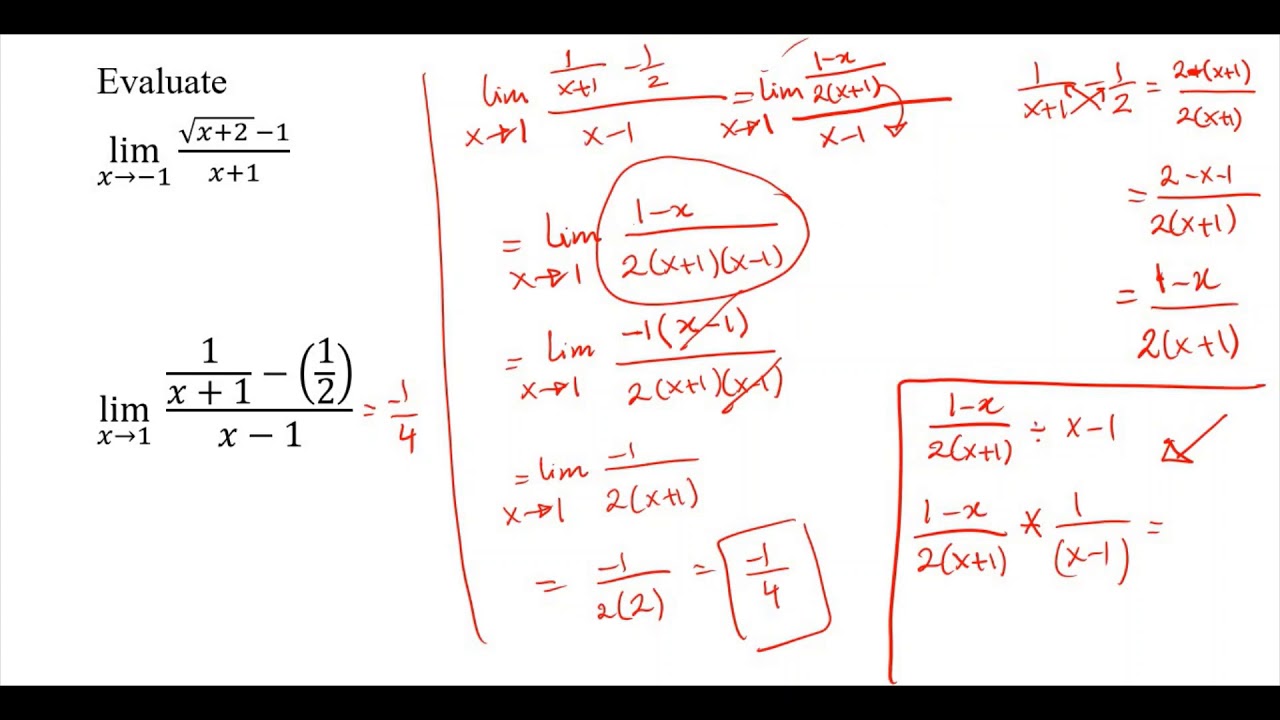 Evaluate
lim x→−1 (√(x+2) −1)/(x+1)
lim x→1 (1/(x+1) − (1/2))/(x − 1) = -1/4
lim x→1 (1/(x+1) - 1/2)/(x-1) = lim x→1 ((1-x)/(2(x+1)))/(x-1)
= lim x→1 (1-x)/(2(x+1)(x-1))
= lim x→1 (-1(x-1))/(2(x+1)(x-1))
= lim x→1 -1/(2(x+1))
= -1/(2(2)) = -1/4
1/(x+1) - 1/2 = (2-(x+1))/(2(x+1))
= (2-x-1)/(2(x+1))
= (1-x)/(2(x+1))
(1-x)/(2(x+1)) ÷ x-1
(1-x)/(2(x+1)) * 1/(x-1) =